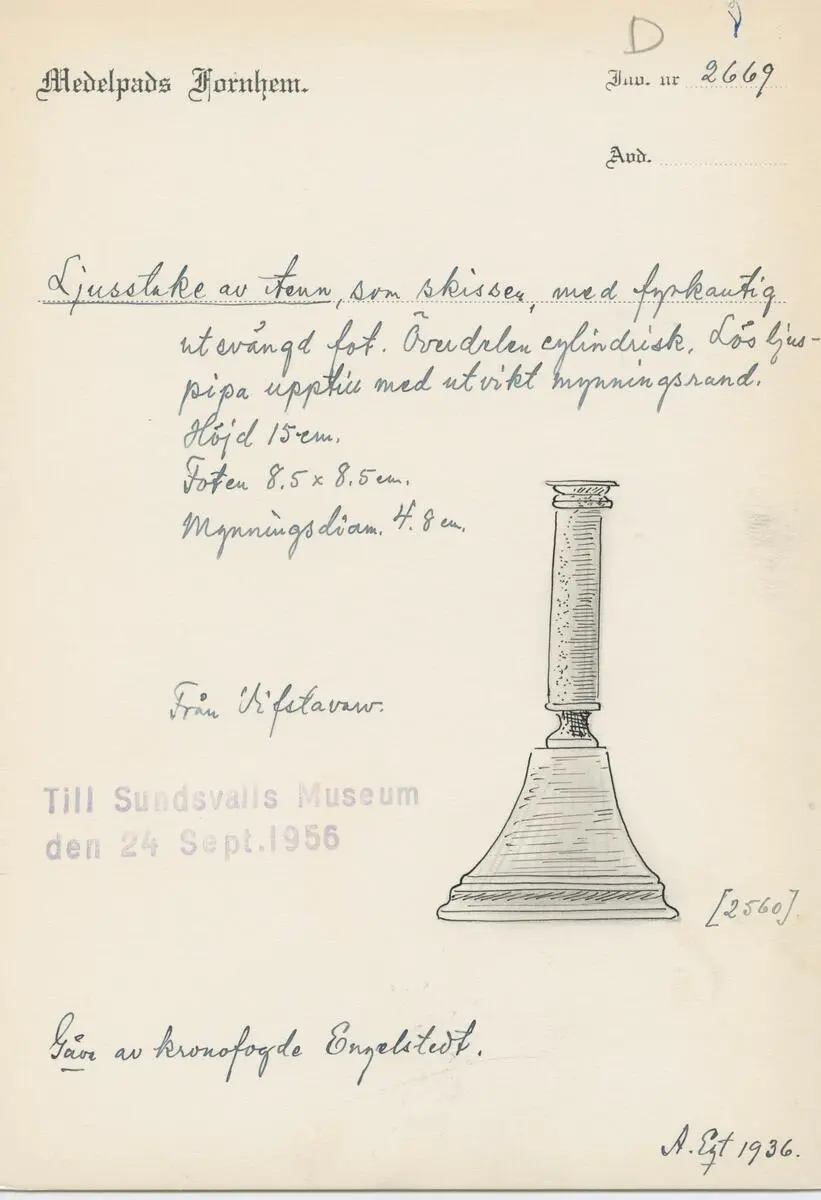 D
Medelpads Fornhem.
Inv. nr 2669
Avd.
Ljusstake av tenn, som skissen, med fyrkantig
utsvängd fot. Överdelen cylindrisk. Lös ljus-
pipa upptill med utvikt mynningsrand.
Höjd 15 cm.
Foten 8.5 x 8.5 cm.
Mynningsdiam. 4.8 cm.
Från Vifstavarv.
Till Sundsvalls Museum
den 24 Sept. 1956
[2560].
Gåva av kronofogde Engelstedt.
A. Ezt 1936.